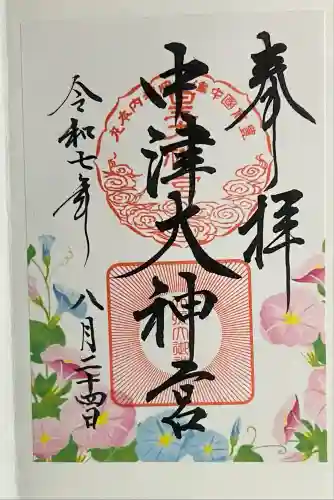 奉拝
中津大神宮
令和七年
八月二十四日